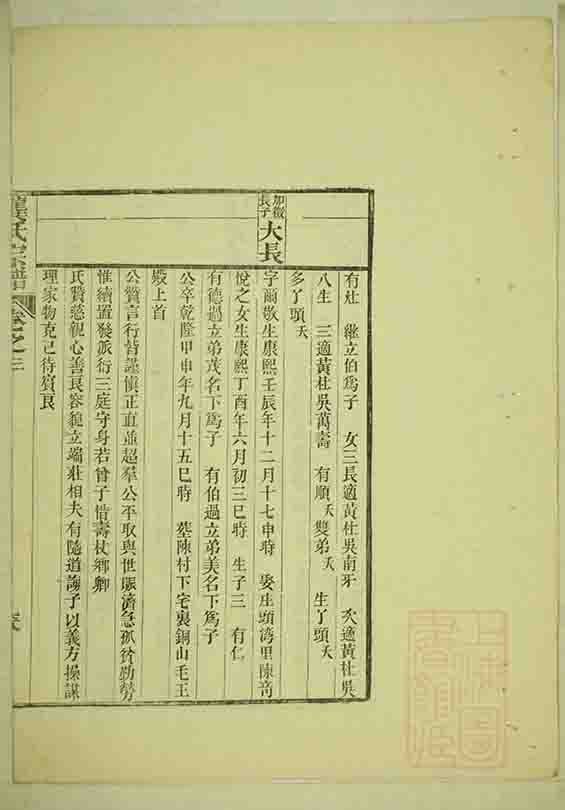 有壯　繼立伯爲子　女三長適黃杜吳南牙　次適黃杜吳
八生　三適黃杜吳萬壽　有順殀雙弟殀　生了頭殀
多了頭殀
加徵長子
大長
字爾敬生康熙壬辰年十二月十七申時　娶生頭灣里陳奇
悅之女生康熙丁酉年六月初三巳時　生子三　有仁
有德過立弟茂名下爲子　有伯過立弟美名下爲子
公卒乾隆甲申年九月十五巳時　墓陳村下宅裏銅山毛王
殿上首
公贊言行皆謹慎正直並超羣公平取與世賑濟急孤貧勤勞
惟續置發派衍三庭守身若曾子惜壽杖鄉卿
氏贊慈親心善良容貌立端莊相夫有隨道誨子以義方操謀
理家物克己待賓良
氏宗譜
卷之三